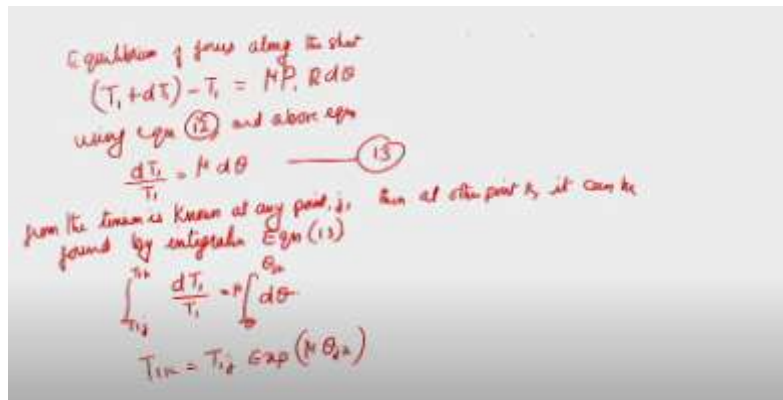 Equilibrium of forces along the sheet
(T₁ + dT₁) - T₁ = μP₁ R dθ
using eqn (12) and above eqn
dT₁/T₁ = μ dθ ——— (13)
from the tension is known at any point, j, then at other point k it can be
found by integratin Eqn (13)
∫_{T₁ⱼ}^{T₁ₖ} dT₁/T₁ = μ ∫₀^{θⱼₖ} dθ
T₁ₖ = T₁ⱼ Exp (μ θⱼₖ)